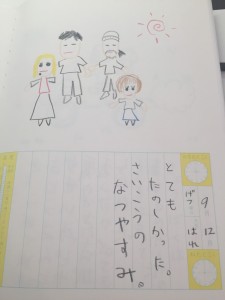 9 12
げつ はれ
とても
たのしかった。
さいこうの
なつやすみ。